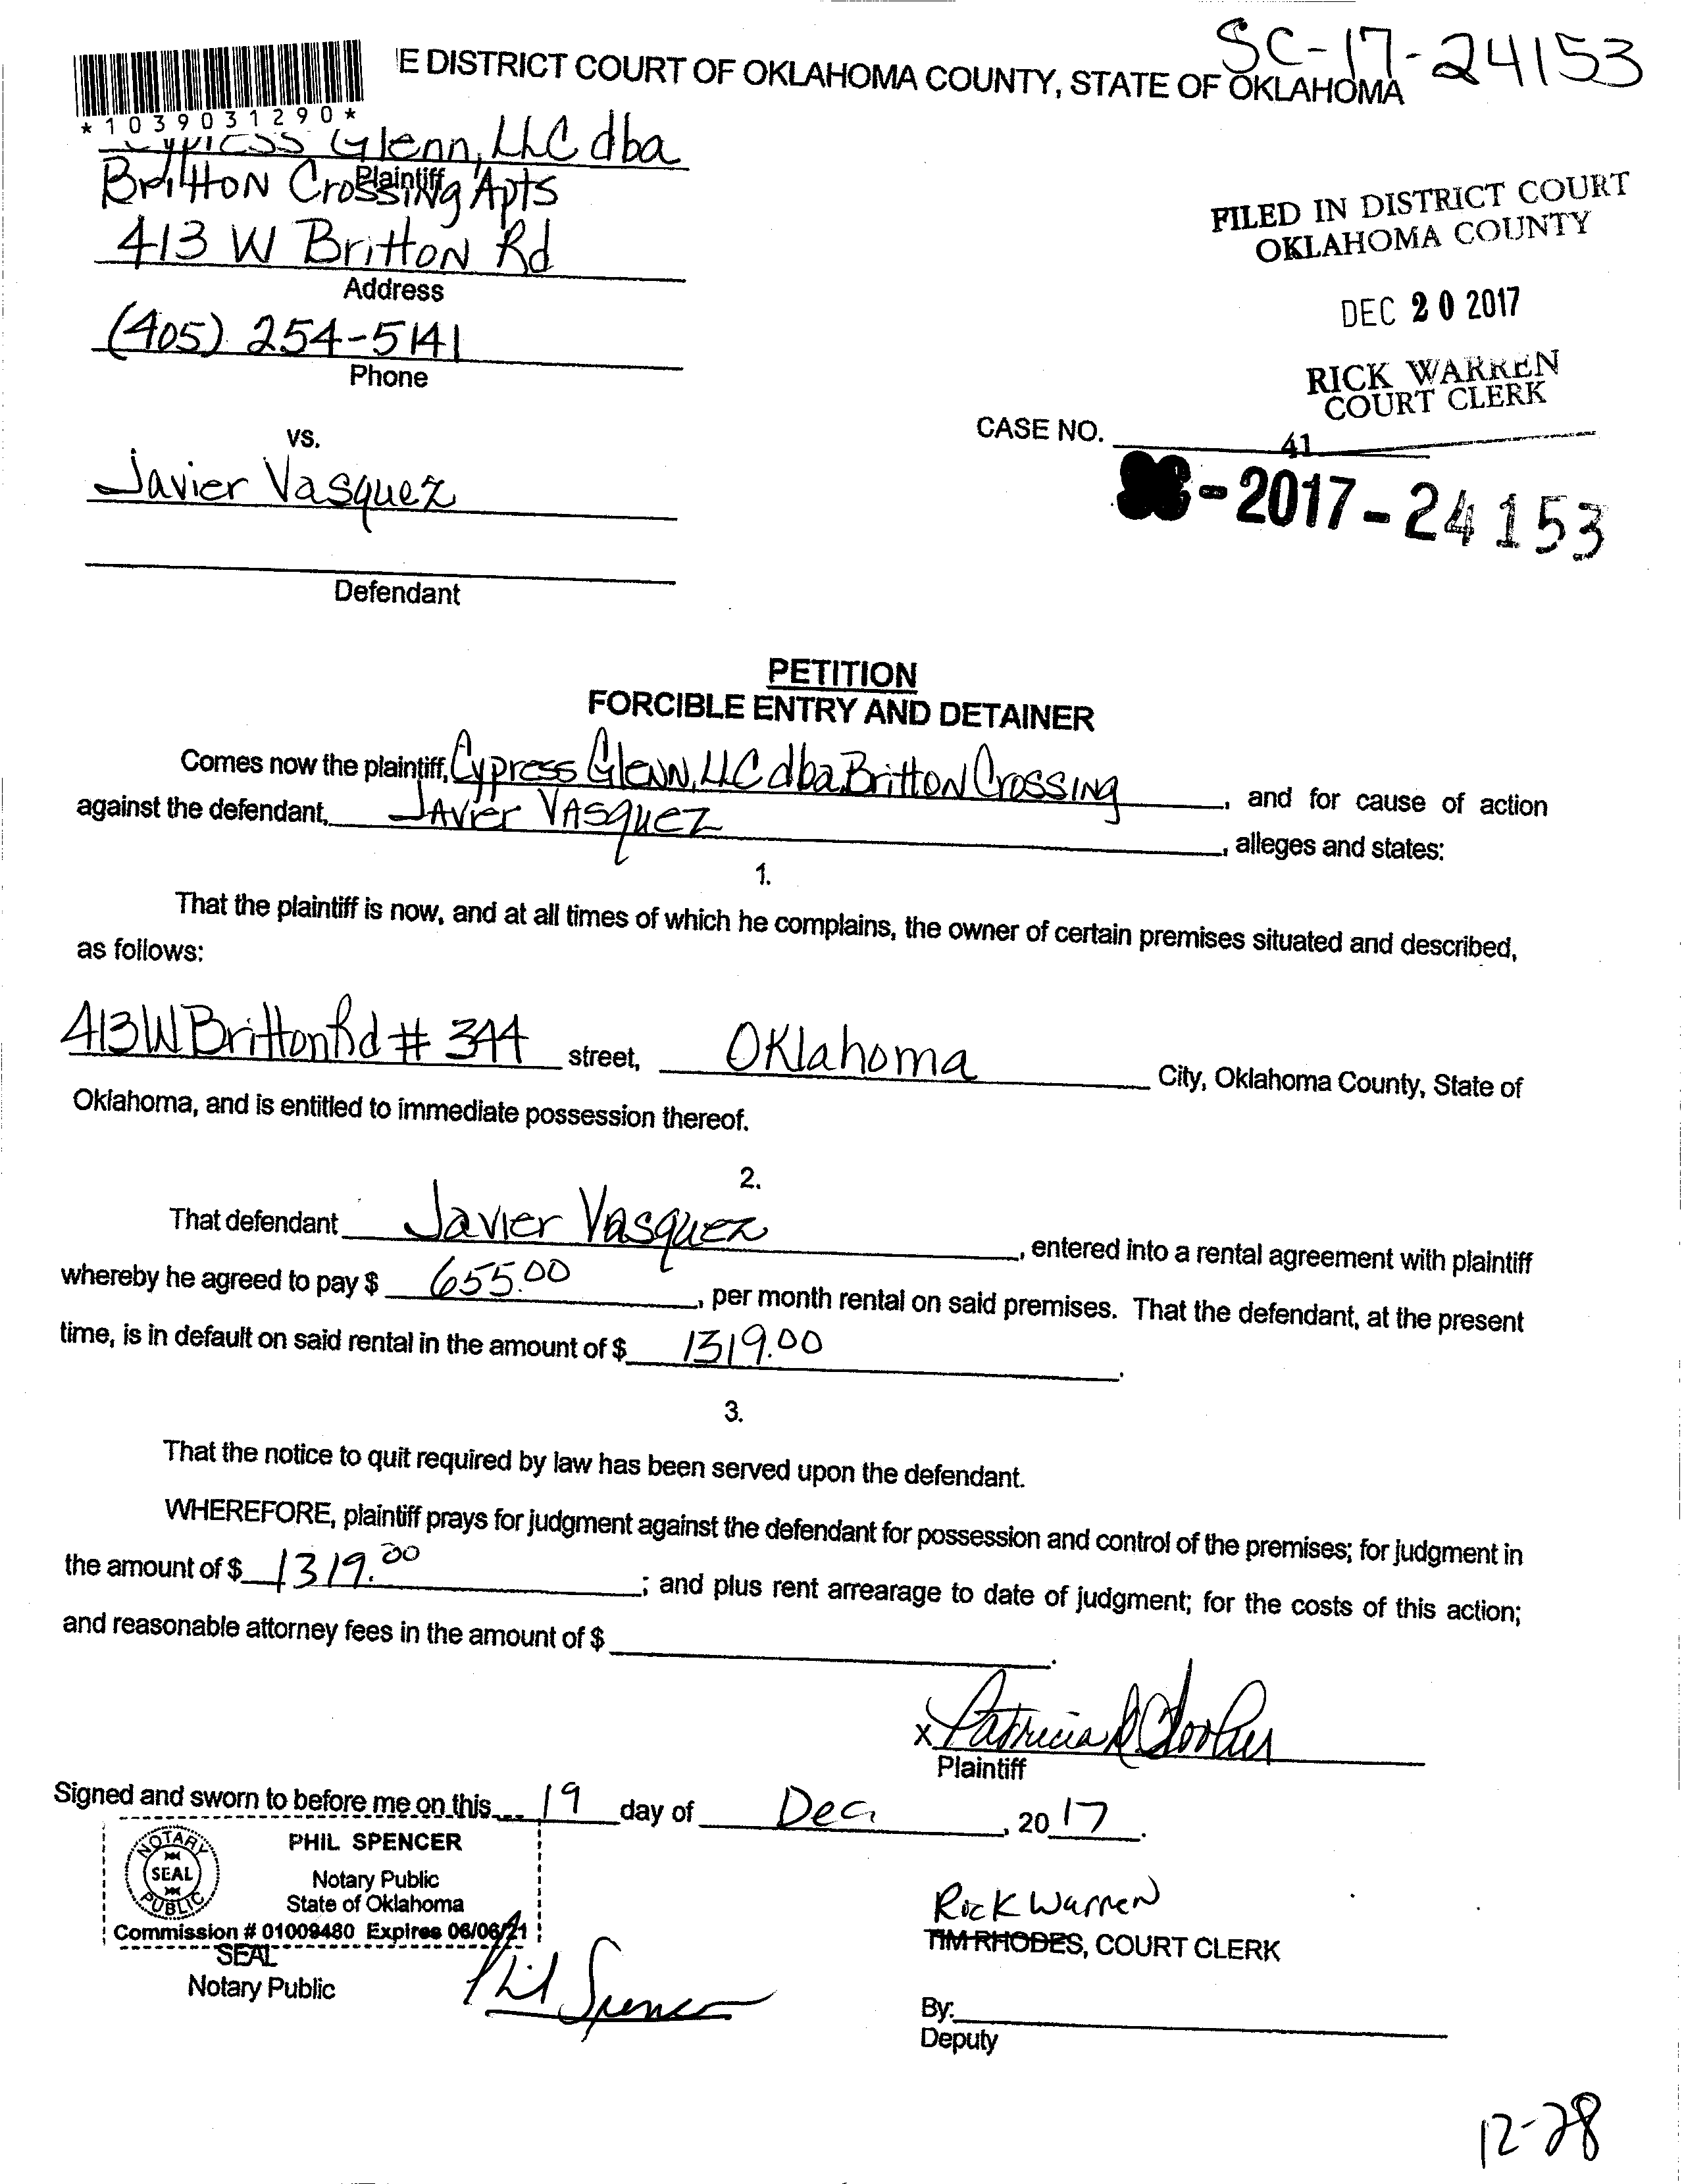 SC-17-24153
E DISTRICT COURT OF OKLAHOMA COUNTY, STATE OF OKLAHOMA
*1039031290*
Cypress Glenn, LLC dba
Plaintiff
Britton Crossing Apts
413 W Britton Rd
Address
(405) 254-5141
Phone
FILED IN DISTRICT COURT
OKLAHOMA COUNTY
DEC 20 2017
RICK WARREN
COURT CLERK
CASE NO.
41
-2017-24153
vs.
Javier Vasquez
Defendant
PETITION
FORCIBLE ENTRY AND DETAINER
Comes now the plaintiff, Cypress Glenn, LLC dba Britton Crossing, and for cause of action
against the defendant, Javier Vasquez, alleges and states:
1.
That the plaintiff is now, and at all times of which he complains, the owner of certain premises situated and described,
as follows:
413 W Britton Rd # 344 street, Oklahoma City, Oklahoma County, State of
Oklahoma, and is entitled to immediate possession thereof.
2.
That defendant Javier Vasquez, entered into a rental agreement with plaintiff
whereby he agreed to pay $ 655.00, per month rental on said premises. That the defendant, at the present
time, is in default on said rental in the amount of $ 1319.00.
3.
That the notice to quit required by law has been served upon the defendant.
WHEREFORE, plaintiff prays for judgment against the defendant for possession and control of the premises; for judgment in
the amount of $ 1319.00; and plus rent arrearage to date of judgment; for the costs of this action;
and reasonable attorney fees in the amount of $ .
x Patricia
Plaintiff
Signed and sworn to before me on this 19 day of Dec, 2017.
NOTARY PUBLIC SEAL
PHIL SPENCER
Notary Public
State of Oklahoma
Commission # 01009480 Expires 06/06/21
SEAL
Notary Public
Phil Spencer
Rick Warren
TIM RHODES, COURT CLERK
By:
Deputy
12-28